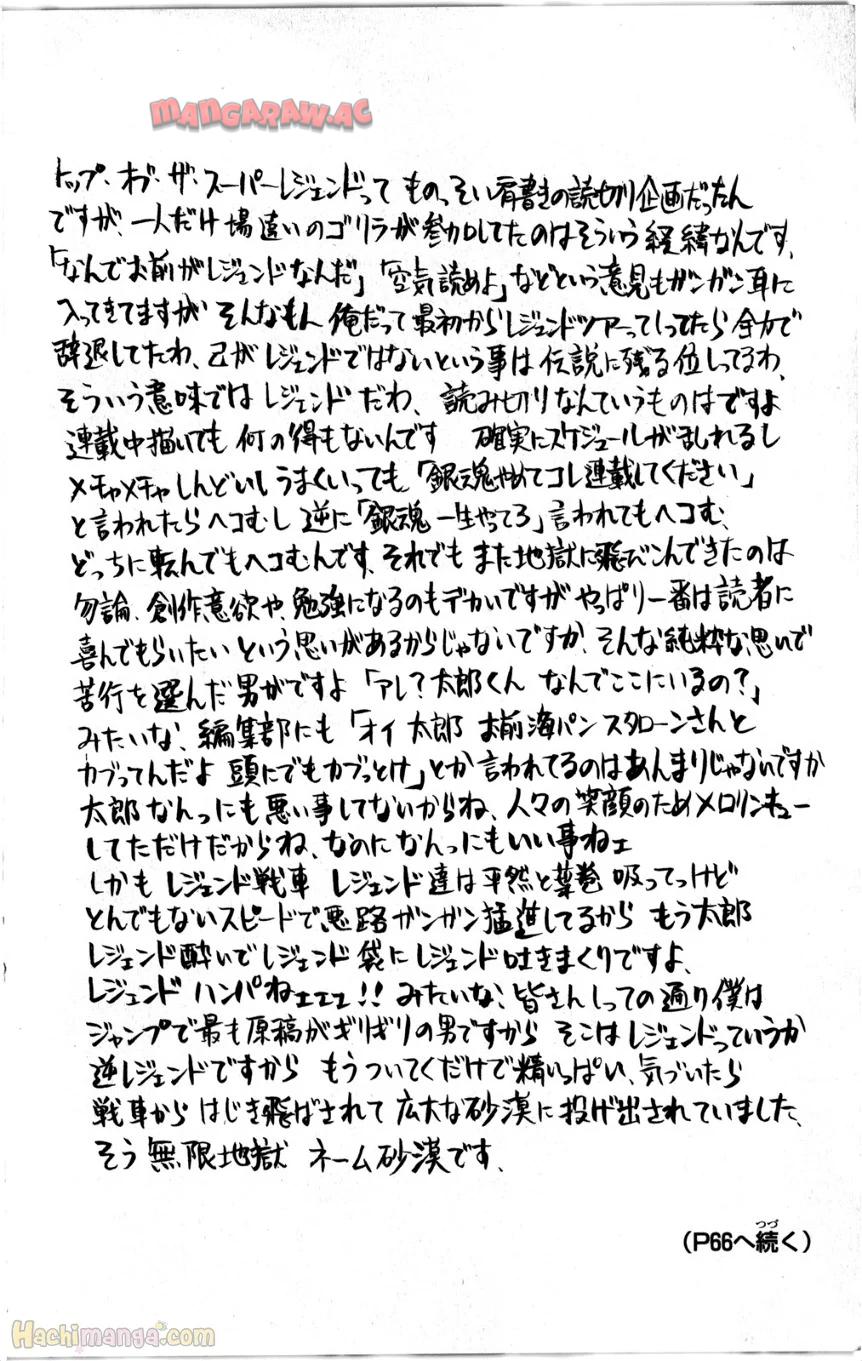 MANGARAW.AC
トップ・オブ・ザ・スーパーレジェンドって ものっそい肩書きの読切り企画だったん
ですが、一人だけ場違いのゴリラが参加してたのはそういう経緯なんです、
「なんでお前がレジェンドなんだ」「空気読めよ」などという意見もガンガン耳に
入ってきてますが そんなもん 俺だって最初からレジェンドツアーってしってたら全力で
辞退してたわ、己がレジェンドではないという事は伝説に残る位しってるわ、
そういう意味ではレジェンドだわ、読み切りなんていうものはですよ
連載中描いても何の得もないんです 確実にスケジュールがましれるし
メチャメチャしんどいし うまくいっても「銀魂やめてコレ連載してください」
と言われたらヘコむし 逆に「銀魂一生やってろ」言われてもヘコむ、
どっちに転んでもヘコむんです、それでもまた地獄に飛びこんできたのは
勿論、創作意欲や、勉強になるのもデカいですが やっぱり一番は読者に
喜んでもらいたいという思いがあるからじゃないですか、そんな純粋な思いで
苦行を選んだ男がですよ「アレ?太郎くん なんでここにいるの?」
みたいな、編集部にも「オイ太郎 お前海パン スタローンさんと
カブってんだよ 頭にでもカブっとけ」とか言われてるのはあんまりじゃないですか
太郎なんっにも悪い事してないからね、人々の笑顔のためメロリンキュー
してただけだからね、なのになんっにもいい事ねェ
しかもレジェンド戦車 レジェンド達は平然と葉巻吸ってっけど
とんでもないスピードで悪路ガンガン猛進してるから もう太郎
レジェンド酔いでレジェンド袋にレジェンド吐きまくりですよ、
レジェンド ハンパねェェェ!! みたいな、皆さんしっての通り僕は
ジャンプで最も原稿がギリギリの男ですから そこはレジェンドっていうか
逆レジェンドですから もうついてくだけで精いっぱい、気づいたら
戦車からはじき飛ばされて広大な砂漠に投げ出されていました、
そう無限地獄 ネーム砂漠です、
(P66へ続く)
つづ
Hachimanga.com!